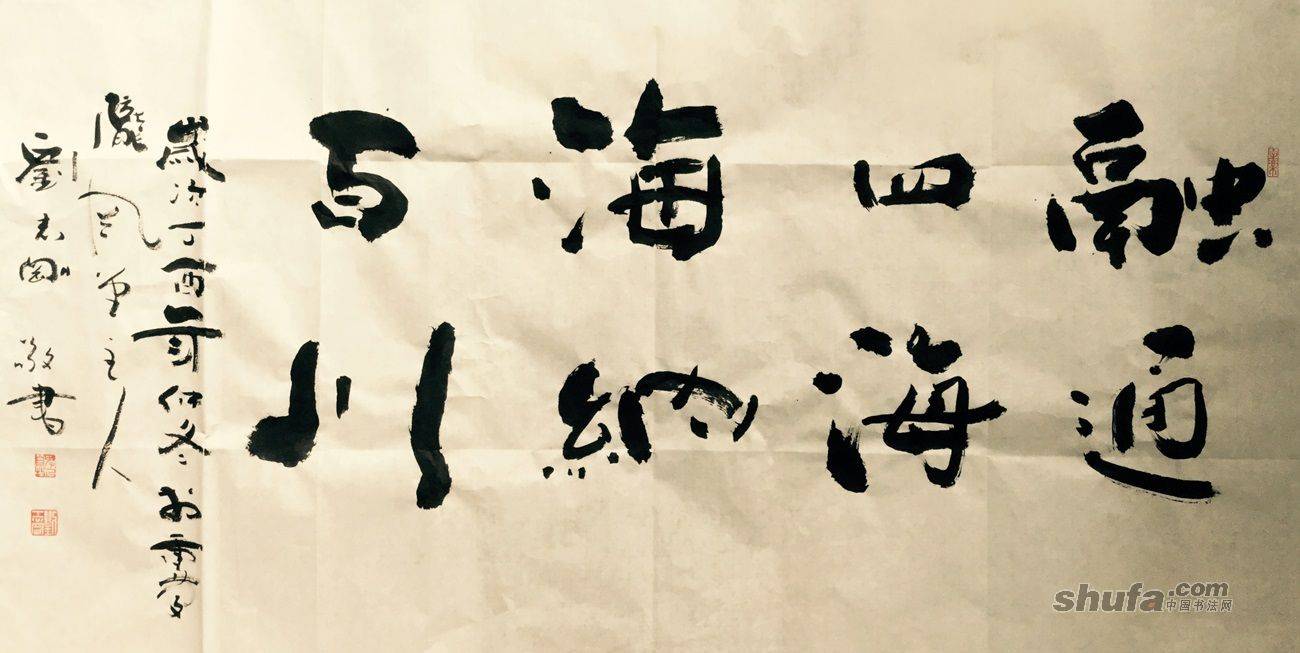 融通
四海
海納
百川
歲次丁酉年仲冬於
隴風堂主人
劉志剛敬書
shufa.com
中国书法网